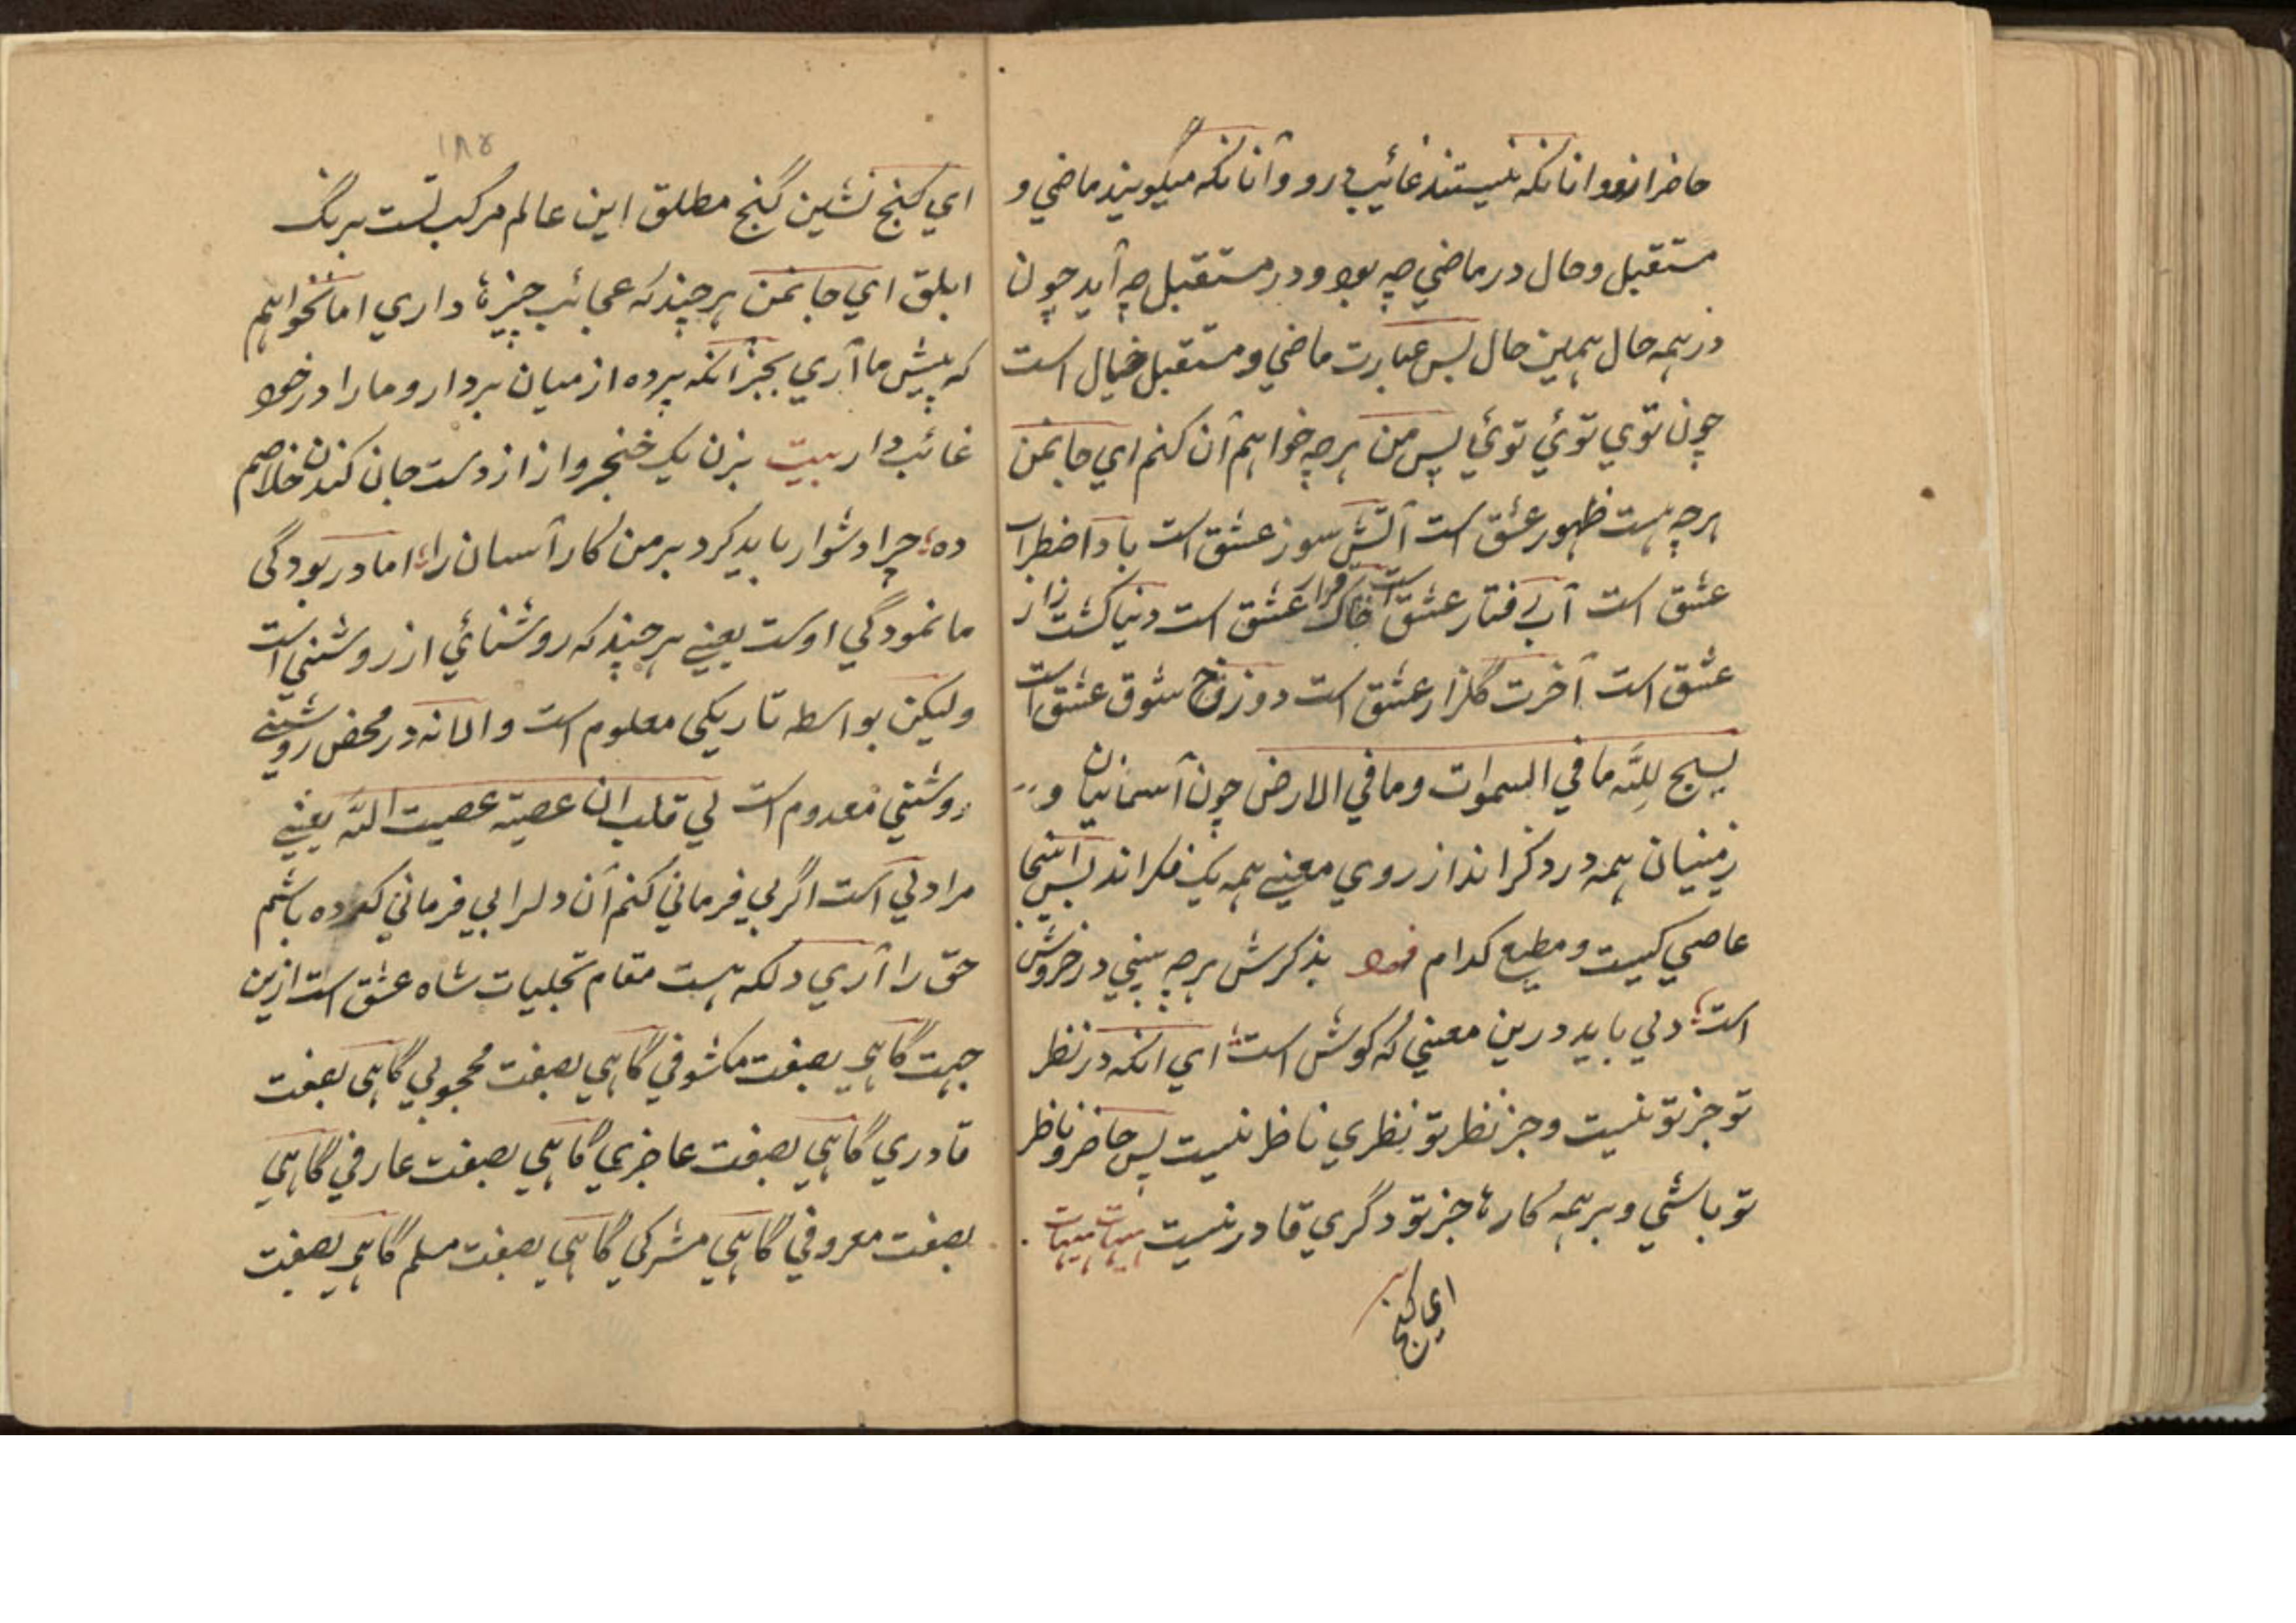 حاضرانزو وانانکه نیستند غائب درو و آنانکه میگویند ماضي و
مستقبل وحال در ماضي چه بود و در مستقبل چه آید چون
در همه حال همین حال بس عبارت ماضي و مستقبل خیال است
چون توي توئي توئي پس من هرچه خواهم آن کنم اي جانمن
هرچه هست ظهور عشق است آتش سوز عشق است باد اضطراب
عشق است آب رفتار عشق است خاک قرار عشق است دنیا کشت زار
عشق است آخرت گلزار عشق است دوزخ شوق عشق است
یسبح لله ما في السموات وما في الارض چون آسمانیان و
زمینیان همه در ذکر اند از روي معني همه یک فکر اند پس آنجا
عاصي کیست و مطیع کدام فرد بذکرش هرچه بیني در خروش
است دلي باید درین معني که گوش است اي انکه در نظر
تو جز تو نیست و جز نظر تو نظري ناظر نیست پس حاضر و ناظر
تو باشي و بر همه کارها جز تو دگري قادر نیست هیهات هیهات
اي کنج
۱۸۴
اي کنج نشین گنج مطلق این عالم مرکب تست برنگ
ابلق اي جانمن هرچند که عجائب چیزها داري اما نخواهم
که پیش ما آري بجز آنکه پرده از میان بردار و ما را در خود
غائب دار بیت بزن یک خنجر و از از دست جان کندن خلاصم
ده چرا دشوار باید کرد بر من کار آسان را اما در بودگي
ما نمودگي اوست یعني هرچند که روشنائي از روشني است
ولیکن بواسطه تاریکي معلوم است و الا نه در محض روشني
روشني معدوم است لي قلب ان عصیته عصیت الله یعني
مرا دلي است اگر بي فرماني کنم آن دلرا بي فرماني کرده باشم
حق را آري دلکه هست مقام تجلیات شاه عشق است ازین
جهت گاهي بصفت مکشوفي گاهي بصفت محجوبي گاهي بصفت
قادري گاهي بصفت عاجزي گاهي بصفت عارفي گاهي
بصفت معروفي گاهي مشرکي گاهي بصفت مسلم گاهي بصفت